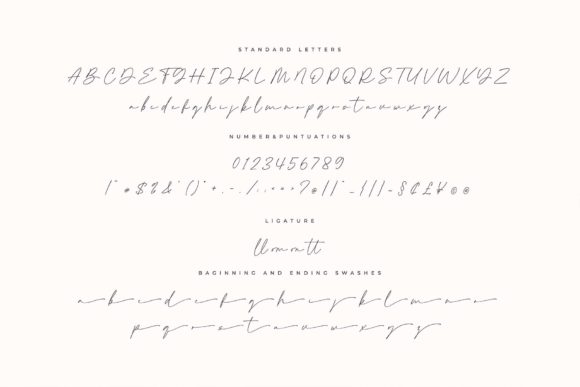 STANDARD LETTERS
ABCDEFGHIJKLMNOPQRSTUVWXYZ
abcdefghijklmnopqrstuvwxyz
NUMBER&PUNTUATIONS
0123456789
!"#$%&'()*+,-./:;<=>?@[\]^_{|}~§¢£¥©®
LIGATURE
ll oo mm tt
BAGINNING AND ENDING SWASHES
abcdefghijklmno
pqrstuvwxyz